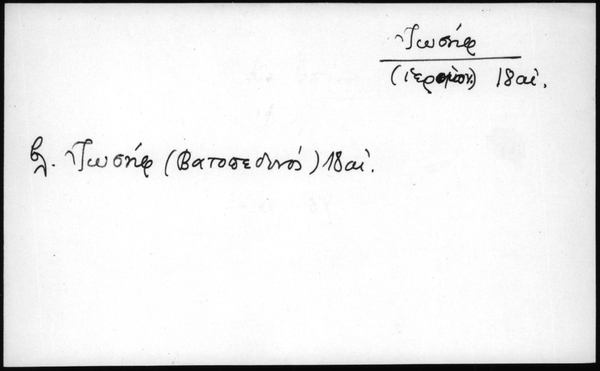 Ἰωσήφ
(ἱερομόν.) 18 αἰ.
βλ. Ἰωσήφ (Βατοπεδινός) 18 αἰ.